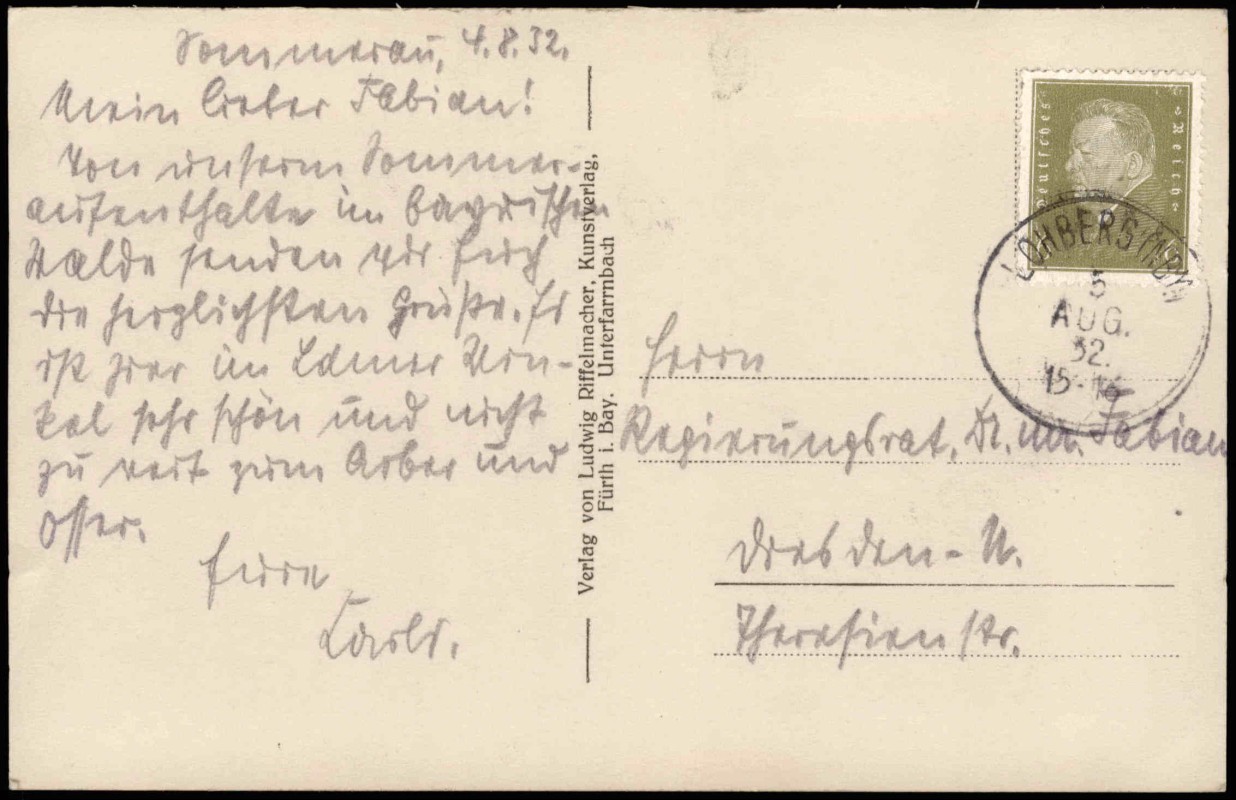 Sommerau, 4.8.32.
Mein lieber Fabian!
Von unserm Sommer-
aufenthalte im bayrischen
Walde senden wir Euch
die herzlichsten Grüße. Es
ist hier im Lamer Win-
kel sehr schön und nicht
zu weit zum Arber und
Osser.
Eure
Verlag von Ludwig Riffelmacher, Kunstverlag,
Fürth i. Bay. Unterfarrnbach
Deutsches Reich
LOHBERG
5
AUG.
32.
15-16
Herrn
Regierungsrat, Dr. Fabian
Dresden-N.
Theresienstr.